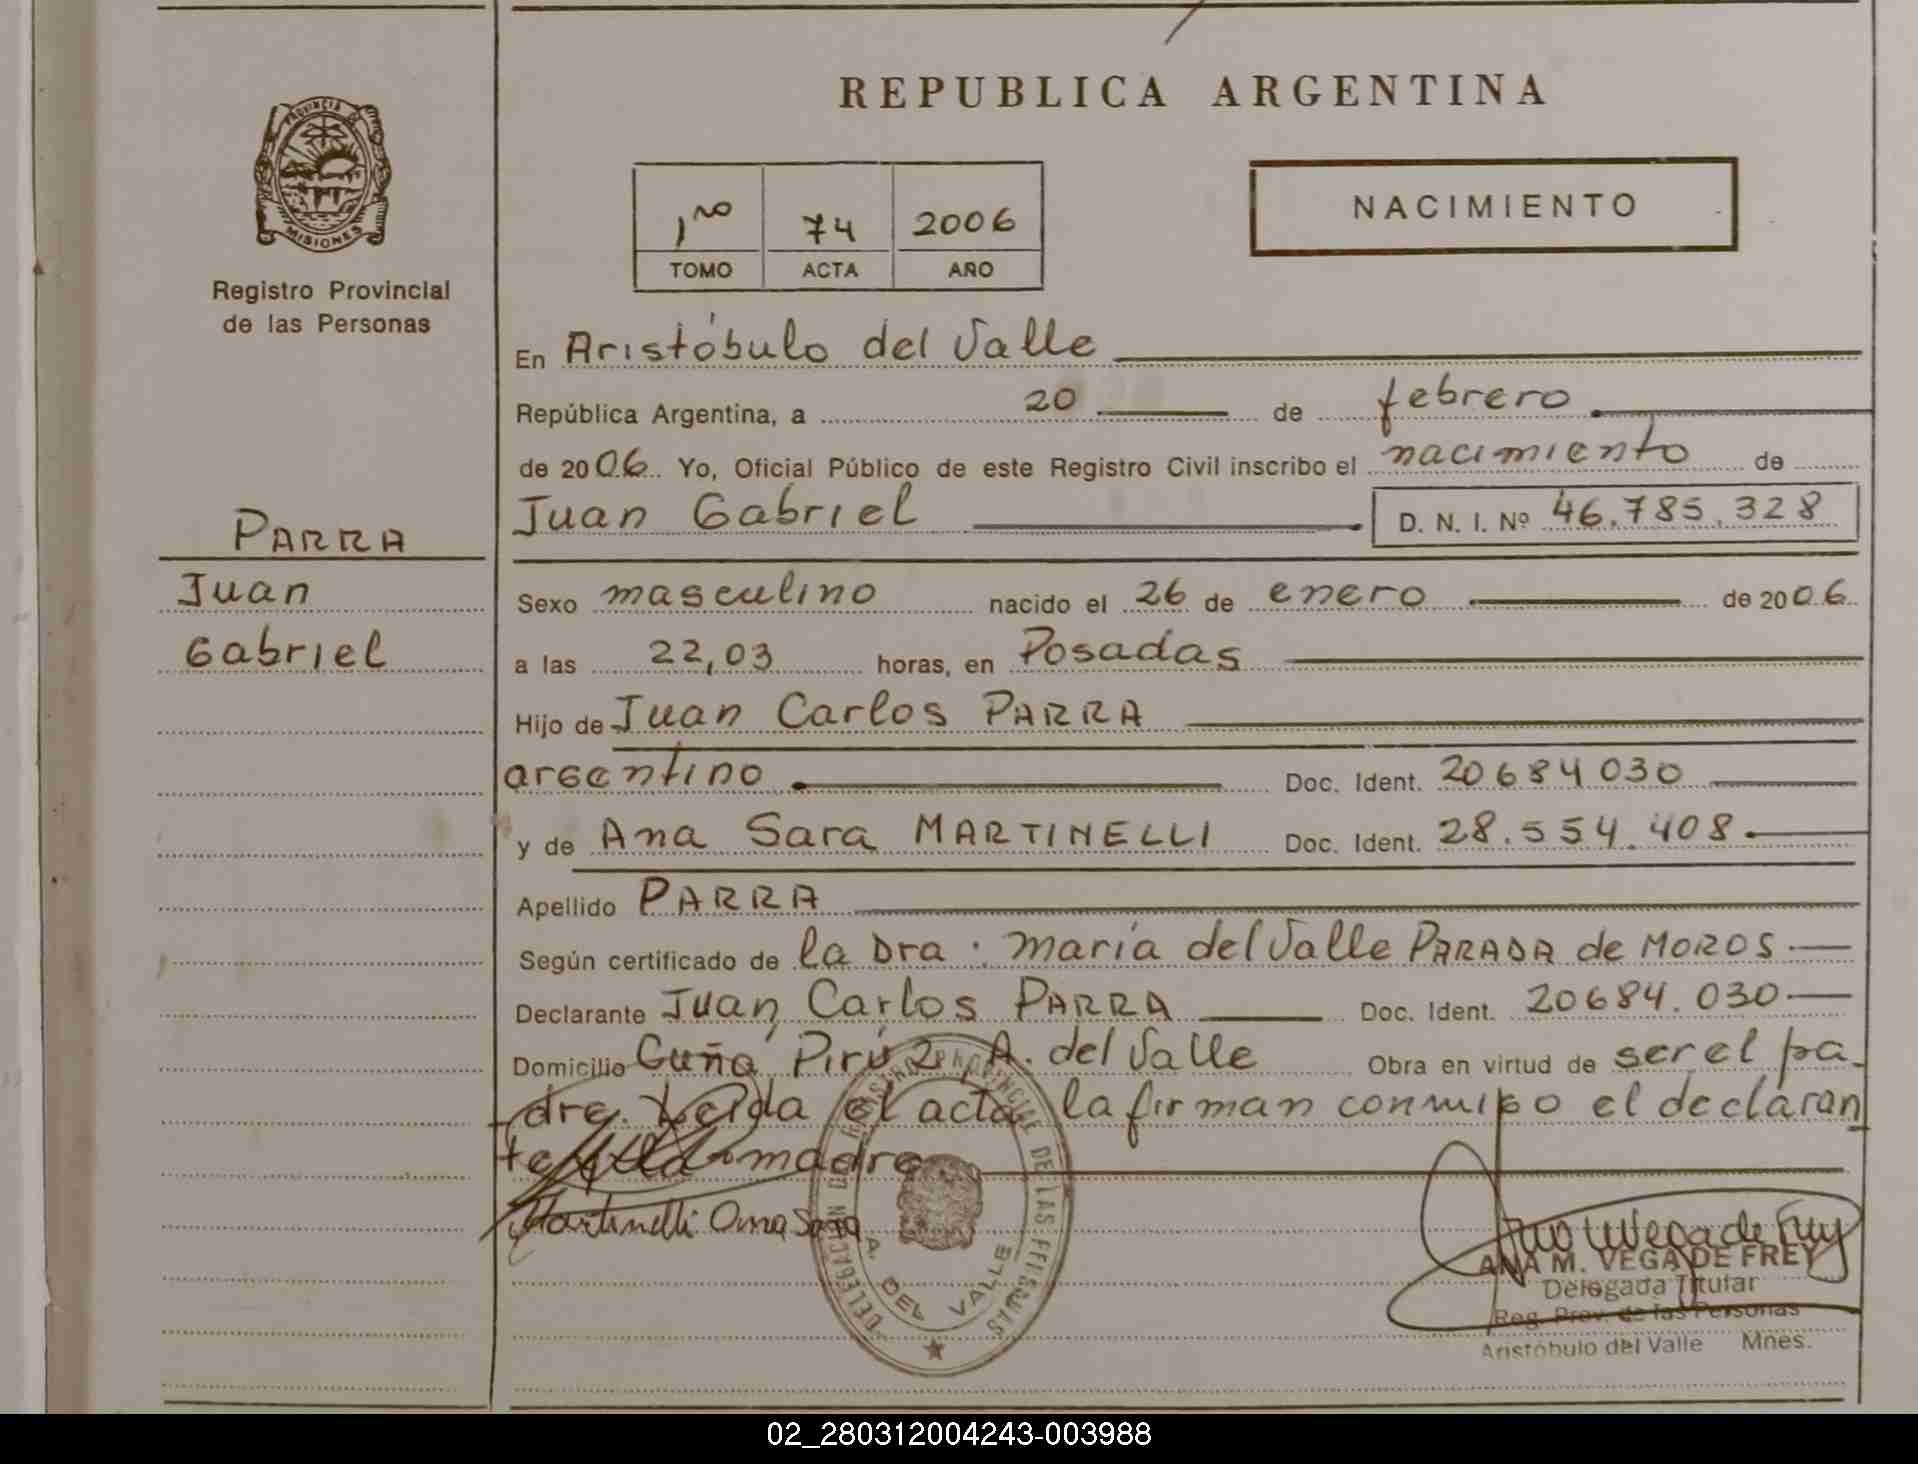 REPUBLICA ARGENTINA
PROVINCIA DE
MISIONES
Registro Provincial
de las Personas
1ro 74 2006
TOMO ACTA AÑO
NACIMIENTO
PARRA
Juan
Gabriel
En Aristóbulo del Valle
República Argentina, a 20 de febrero
de 2006. Yo, Oficial Público de este Registro Civil inscribo el nacimiento de
Juan Gabriel D. N. I. Nº 46.785.328
Sexo masculino nacido el 26 de enero de 2006.
a las 22,03 horas, en Posadas
Hijo de Juan Carlos PARRA
argentino Doc. Ident. 20684030
y de Ana Sara MARTINELLI Doc. Ident. 28.554.408
Apellido PARRA
Según certificado de la Dra. María del Valle PARADA de MOROS
Declarante Juan Carlos PARRA Doc. Ident. 20684.030
Domicilio Cuña Pirú 2, A. del Valle Obra en virtud de ser el pa-
dre. Leída el acta la firman conmigo el declaran
te y la madre
Martinelli Ana Sara
REGISTRO PROVINCIAL DE LAS PERSONAS
DELEGACION
A. DEL VALLE
ANA M. VEGA DE FREY
Delegada Titular
Reg. Prov. de las Personas
Aristóbulo del Valle Mnes.
02_280312004243-003988